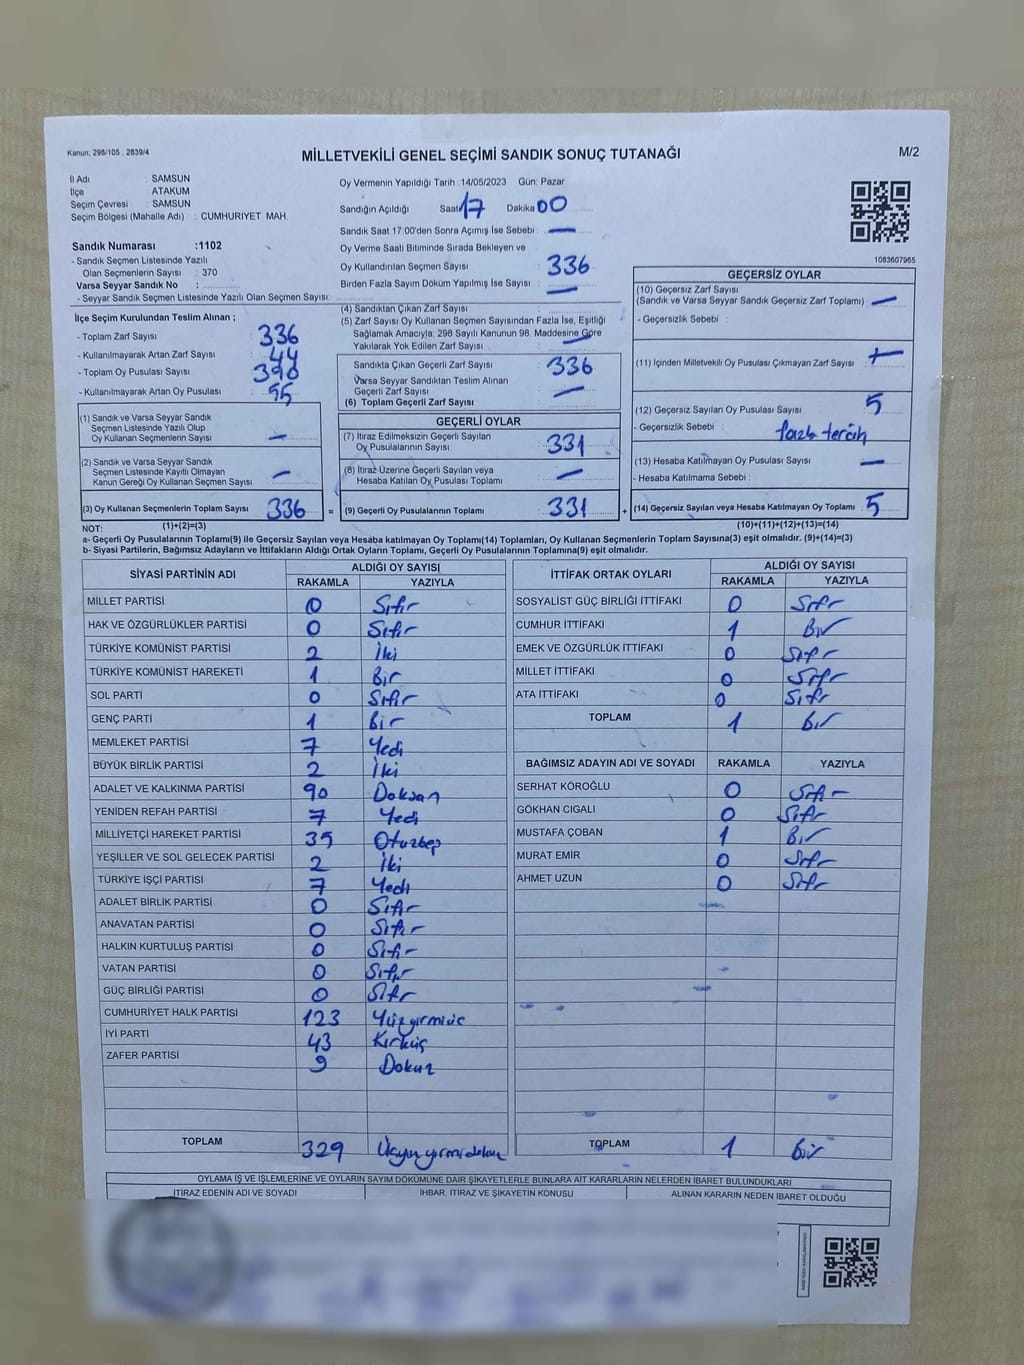 Kanun, 298/105 , 2839/4
MİLLETVEKİLİ GENEL SEÇİMİ SANDIK SONUÇ TUTANAĞI
M/2
İl Adı : SAMSUN
İlçe : ATAKUM
Seçim Çevresi : SAMSUN
Seçim Bölgesi (Mahalle Adı) : CUMHURIYET MAH.
Sandık Numarası :1102
- Sandık Seçmen Listesinde Yazılı
Olan Seçmenlerin Sayısı : 370
Varsa Seyyar Sandık No :
- Seyyar Sandık Seçmen Listesinde Yazılı Olan Seçmen Sayısı:
Oy Vermenin Yapıldığı Tarih :14/05/2023 Gün: Pazar
Sandığın Açıldığı Saat 17 Dakika 00
Sandık Saat 17:00'den Sonra Açımış İse Sebebi : —
Oy Verme Saati Bitiminde Sırada Bekleyen ve
Oy Kullandırılan Seçmen Sayısı : 336
Birden Fazla Sayım Döküm Yapılmış İse Sayısı : —
1083607965
İlçe Seçim Kurulundan Teslim Alınan ;
- Toplam Zarf Sayısı : 336
- Kullanılmayarak Artan Zarf Sayısı : 44
- Toplam Oy Pusulası Sayısı : 390
- Kullanılmayarak Artan Oy Pusulası : 55
(1) Sandık ve Varsa Seyyar Sandık
Seçmen Listesinde Yazılı Olup
Oy Kullanan Seçmenlerin Sayısı : —
(2) Sandık ve Varsa Seyyar Sandık
Seçmen Listesinde Kayıtlı Olmayan
Kanun Gereği Oy Kullanan Seçmen Sayısı : —
(3) Oy Kullanan Seçmenlerin Toplam Sayısı 336 =
(1)+(2)=(3)
(4) Sandıktan Çıkan Zarf Sayısı :
(5) Zarf Sayısı Oy Kullanan Seçmen Sayısından Fazla İse, Eşitliği
Sağlamak Amacıyla; 298 Sayılı Kanunun 98. Maddesine Göre
Yakılarak Yok Edilen Zarf Sayısı : —
Sandıkta Çıkan Geçerli Zarf Sayısı : 336
Varsa Seyyar Sandıktan Teslim Alınan
Geçerli Zarf Sayısı : —
(6) Toplam Geçerli Zarf Sayısı :
GEÇERLİ OYLAR
(7) İtiraz Edilmeksizin Geçerli Sayılan
Oy Pusulasının Sayısı : 331
(8) İtiraz Üzerine Geçerli Sayılan veya
Hesaba Katılan Oy Pusulası Toplamı : —
(9) Geçerli Oy Pusulalarının Toplamı : 331 +
GEÇERSİZ OYLAR
(10) Geçersiz Zarf Sayısı
(Sandık ve Varsa Seyyar Sandık Geçersiz Zarf Toplamı) : —
- Geçersizlik Sebebi :
(11) İçinden Milletvekili Oy Pusulası Çıkmayan Zarf Sayısı :
(12) Geçersiz Sayılan Oy Pusulası Sayısı : 5
- Geçersizlik Sebebi : fazla tercih
(13) Hesaba Katılmayan Oy Pusulası Sayısı : —
- Hesaba Katılmama Sebebi :
(14) Geçersiz Sayılan veya Hesaba Katılmayan Oy Toplamı : 5
(10)+(11)+(12)+(13)=(14)
NOT:
a- Geçerli Oy Pusulalarının Toplamı(9) ile Geçersiz Sayılan veya Hesaba Katılmayan Oy Toplamı(14) Toplamları, Oy Kullanan Seçmenlerin Toplam Sayısına(3) eşit olmalıdır. (9)+(14)=(3)
b- Siyasi Partilerin, Bağımsız Adayların ve İttifakların Aldığı Ortak Oyların Toplamı, Geçerli Oy Pusulalarının Toplamına(9) eşit olmalıdır.
SİYASİ PARTİNİN ADI ALDIĞI OY SAYISI
RAKAMLA YAZIYLA
MİLLET PARTİSİ 0 Sıfır
HAK VE ÖZGÜRLÜKLER PARTİSİ 0 Sıfır
TÜRKİYE KOMÜNİST PARTİSİ 2 İki
TÜRKİYE KOMÜNİST HAREKETİ 1 Bir
SOL PARTİ 0 Sıfır
GENÇ PARTİ 1 Bir
MEMLEKET PARTİSİ 7 Yedi
BÜYÜK BİRLİK PARTİSİ 2 İki
ADALET VE KALKINMA PARTİSİ 90 Doksan
YENİDEN REFAH PARTİSİ 7 Yedi
MİLLİYETÇİ HAREKET PARTİSİ 35 Otuzbeş
YEŞİLLER VE SOL GELECEK PARTİSİ 2 İki
TÜRKİYE İŞÇİ PARTİSİ 7 Yedi
ADALET BİRLİK PARTİSİ 0 Sıfır
ANAVATAN PARTİSİ 0 Sıfır
HALKIN KURTULUŞ PARTİSİ 0 Sıfır
VATAN PARTİSİ 0 Sıfır
GÜÇ BİRLİĞİ PARTİSİ 0 Sıfır
CUMHURİYET HALK PARTİSİ 123 Yüzyirmiüç
İYİ PARTİ 43 Kırküç
ZAFER PARTİSİ 9 Dokuz
TOPLAM 329 Üçyüzyirmidokuz
İTTİFAK ORTAK OYLARI ALDIĞI OY SAYISI
RAKAMLA YAZIYLA
SOSYALİST GÜÇ BİRLİĞİ İTTİFAKI 0 Sıfır
CUMHUR İTTİFAKI 1 Bir
EMEK VE ÖZGÜRLÜK İTTİFAKI 0 Sıfır
MİLLET İTTİFAKI 0 Sıfır
ATA İTTİFAKI 0 Sıfır
TOPLAM 1 Bir
BAĞIMSIZ ADAYIN ADI VE SOYADI RAKAMLA YAZIYLA
SERHAT KÖROĞLU 0 Sıfır
GÖKHAN CIGALI 0 Sıfır
MUSTAFA ÇOBAN 1 Bir
MURAT EMİR 0 Sıfır
AHMET UZUN 0 Sıfır
TOPLAM 1 Bir
OYLAMA İŞ VE İŞLEMLERİNE VE OYLARIN SAYIM DÖKÜMÜNE DAİR ŞİKAYETLERLE BUNLARA AİT KARARLARIN NELERDEN İBARET BULUNDUKLARI
İTİRAZ EDENİN ADI VE SOYADI İHBAR, İTİRAZ VE ŞİKAYETİN KONUSU ALINAN KARARIN NEDEN İBARET OLDUĞU